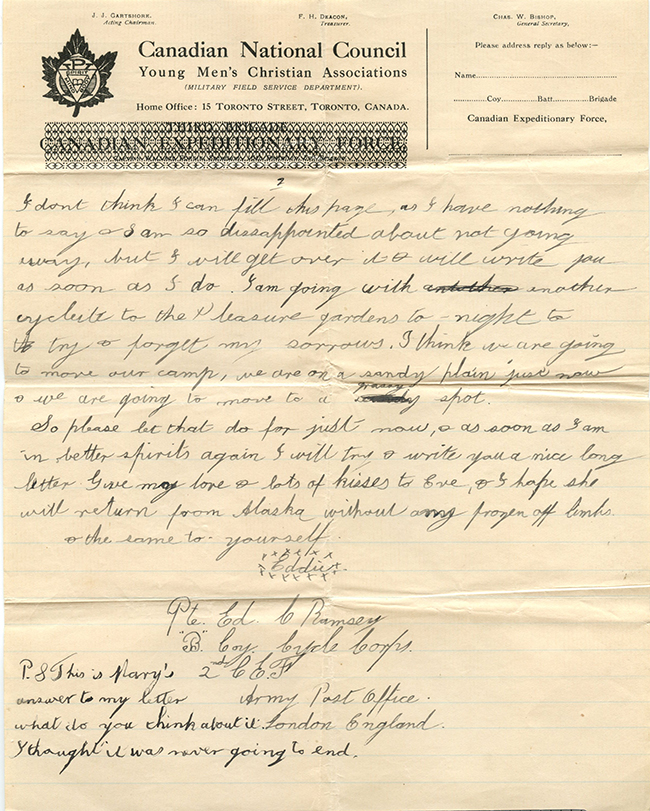 J. J. GARTSHORE,
Acting Chairman.
F. H. DEACON,
Treasurer.
CHAS. W. BISHOP,
General Secretary,
Canadian National Council
Young Men's Christian Associations
(MILITARY FIELD SERVICE DEPARTMENT).
Home Office: 15 TORONTO STREET, TORONTO, CANADA.
THIRD BRIGADE,
CANADIAN EXPEDITIONARY FORCE,
Please address reply as below:—
Name
Coy. Batt. Brigade
Canadian Expeditionary Force,
2
I dont think I can fill this page, as I have nothing
to say & I am so dissappointed about not going
away, but I will get over it & will write you
as soon as I do. I am going with another
cyclist to the Pleasure gardens to-night to
to try & forget my sorrows. I think we are going
to move our camp, we are on a sandy plain just now
& we are going to move to a grassy spot.
So please let that do for just now, & as soon as I am
in better spirits again I will try & write you a nice long
letter Give my love & lots of kisses to Eve, & I hope she
will return from Alaska without any frozen off limbs.
& the same to yourself.
x x x x x x x
Eddie
x x x x x x
Pte. Ed. C Ramsey
"B" Coy. Cycle Corps.
2nd C.E.F
Army Post Office.
London England.
P.S This is Mary's
answer to my letter
what do you think about it.
I thought it was never going to end.